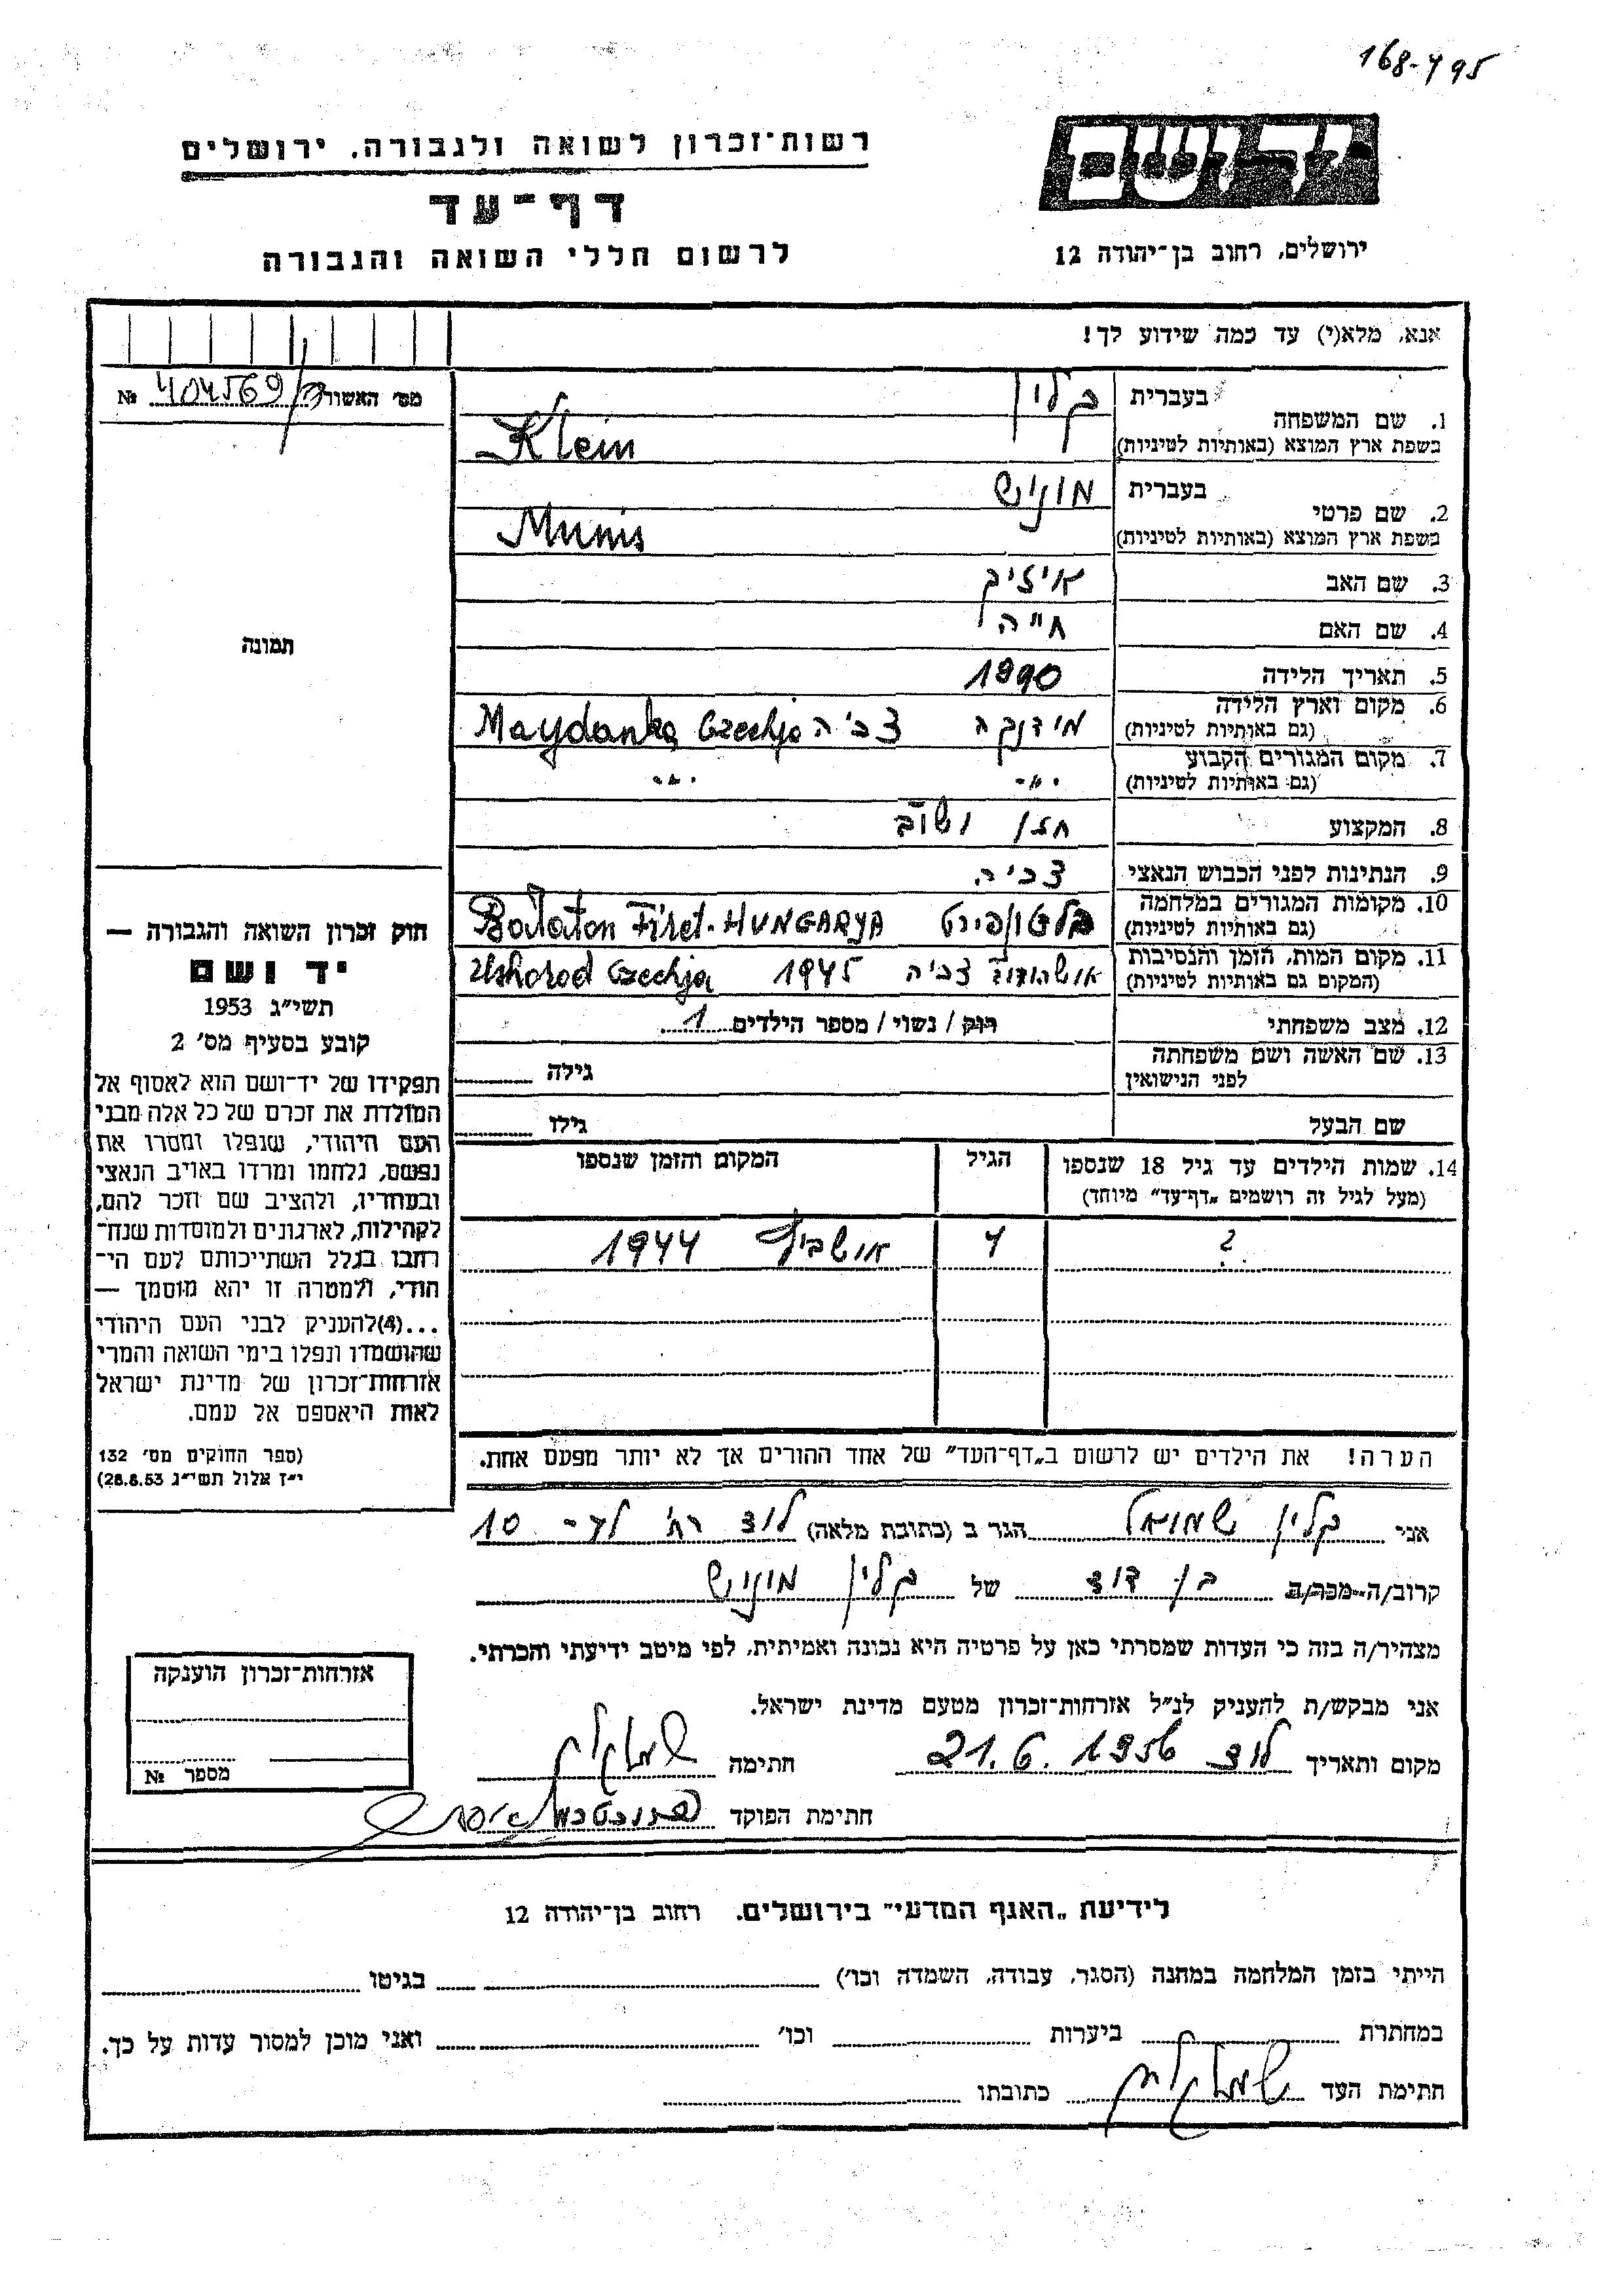 168-495
יד ושם
ירושלים, רחוב בן־יהודה 12
רשות־זכרון לשואה ולגבורה, ירושלים
דף־עד
לרשום חללי השואה והגבורה
אנא, מלא(י) עד כמה שידוע לך!
מס׳ האשור 404569 №
1. שם המשפחה
בעברית קלין
בשפת ארץ המוצא (באותיות לטיניות) Klein
2. שם פרטי
בעברית מוניש
בשפת ארץ המוצא (באותיות לטיניות) Munis
3. שם האב אייזיק
4. שם האם חייה
5. תאריך הלידה 1990
6. מקום וארץ הלידה
(גם באותיות לטיניות) מידנקה צ׳כיה Maydanka Czechja
7. מקום המגורים הקבוע
(גם באותיות לטיניות) -״- -״-
8. המקצוע חזן ושוב
9. הנתינות לפני הכבוש הנאצי צכיה
10. מקומות המגורים במלחמה
(גם באותיות לטיניות) בלטון פירט Balaton Firet. HUNGARYA
11. מקום המות, הזמן והנסיבות
(המקום גם באותיות לטיניות) אושהורוד צכיה 1945 Ushorod Czechja
12. מצב משפחתי רוק / נשוי / מספר הילדים 1
13. שם האשה ושם משפחתה
לפני הנישואין גילה
שם הבעל גילו
14. שמות הילדים עד גיל 18 שנספו הגיל המקום והזמן שנספו
(מעל לגיל זה רושמים „דף־עד״ מיוחד)
? 4 אושביץ 1944
הערה! את הילדים יש לרשום ב„דף־העד״ של אחד ההורים אך לא יותר מפעם אחת.
תמונה
חוק זכרון השואה והגבורה —
יד ושם
תשי״ג 1953
קובע בסעיף מס׳ 2
תפקידו של יד־ושם הוא לאסוף אל
המולדת את זכרם של כל אלה מבני
העם היהודי, שנפלו ומסרו את
נפשם, נלחמו ומרדו באויב הנאצי
ובעוזריו, ולהציב שם וזכר להם,
לקהילות, לארגונים ולמוסדות שנח־
רבו בגלל השתייכותם לעם הי־
הודי, ולמטרה זו יהא מוסמך —
...(4)להעניק לבני העם היהודי
שהושמדו ונפלו בימי השואה והמרי
אזרחות־זכרון של מדינת ישראל
לאות היאספם אל עמם.
(ספר החוקים מס׳ 132
י״ז אלול תשי״ג 28.8.53)
אני קלין שמואל הגר ב (כתובת מלאה) לוד רח׳ 10
קרוב/ה מכר/ה בן דוד של קלין מוניש
מצהיר/ה בזה כי העדות שמסרתי כאן על פרטיה היא נכונה ואמיתית, לפי מיטב ידיעתי והכרתי.
אני מבקש/ת להעניק לנ״ל אזרחות־זכרון מטעם מדינת ישראל.
מקום ותאריך לוד 21.6.1956 חתימה
חתימת הפוקד
אזרחות־זכרון הוענקה
מספר №
לידיעת „האגף המדעי״ בירושלים. רחוב בן־יהודה 12
הייתי בזמן המלחמה במחנה (הסגר, עבודה, השמדה וכו׳) בגיטו
במחתרת ביערות וכו׳ ואני מוכן למסור עדות על כך.
חתימת העד כתובתו